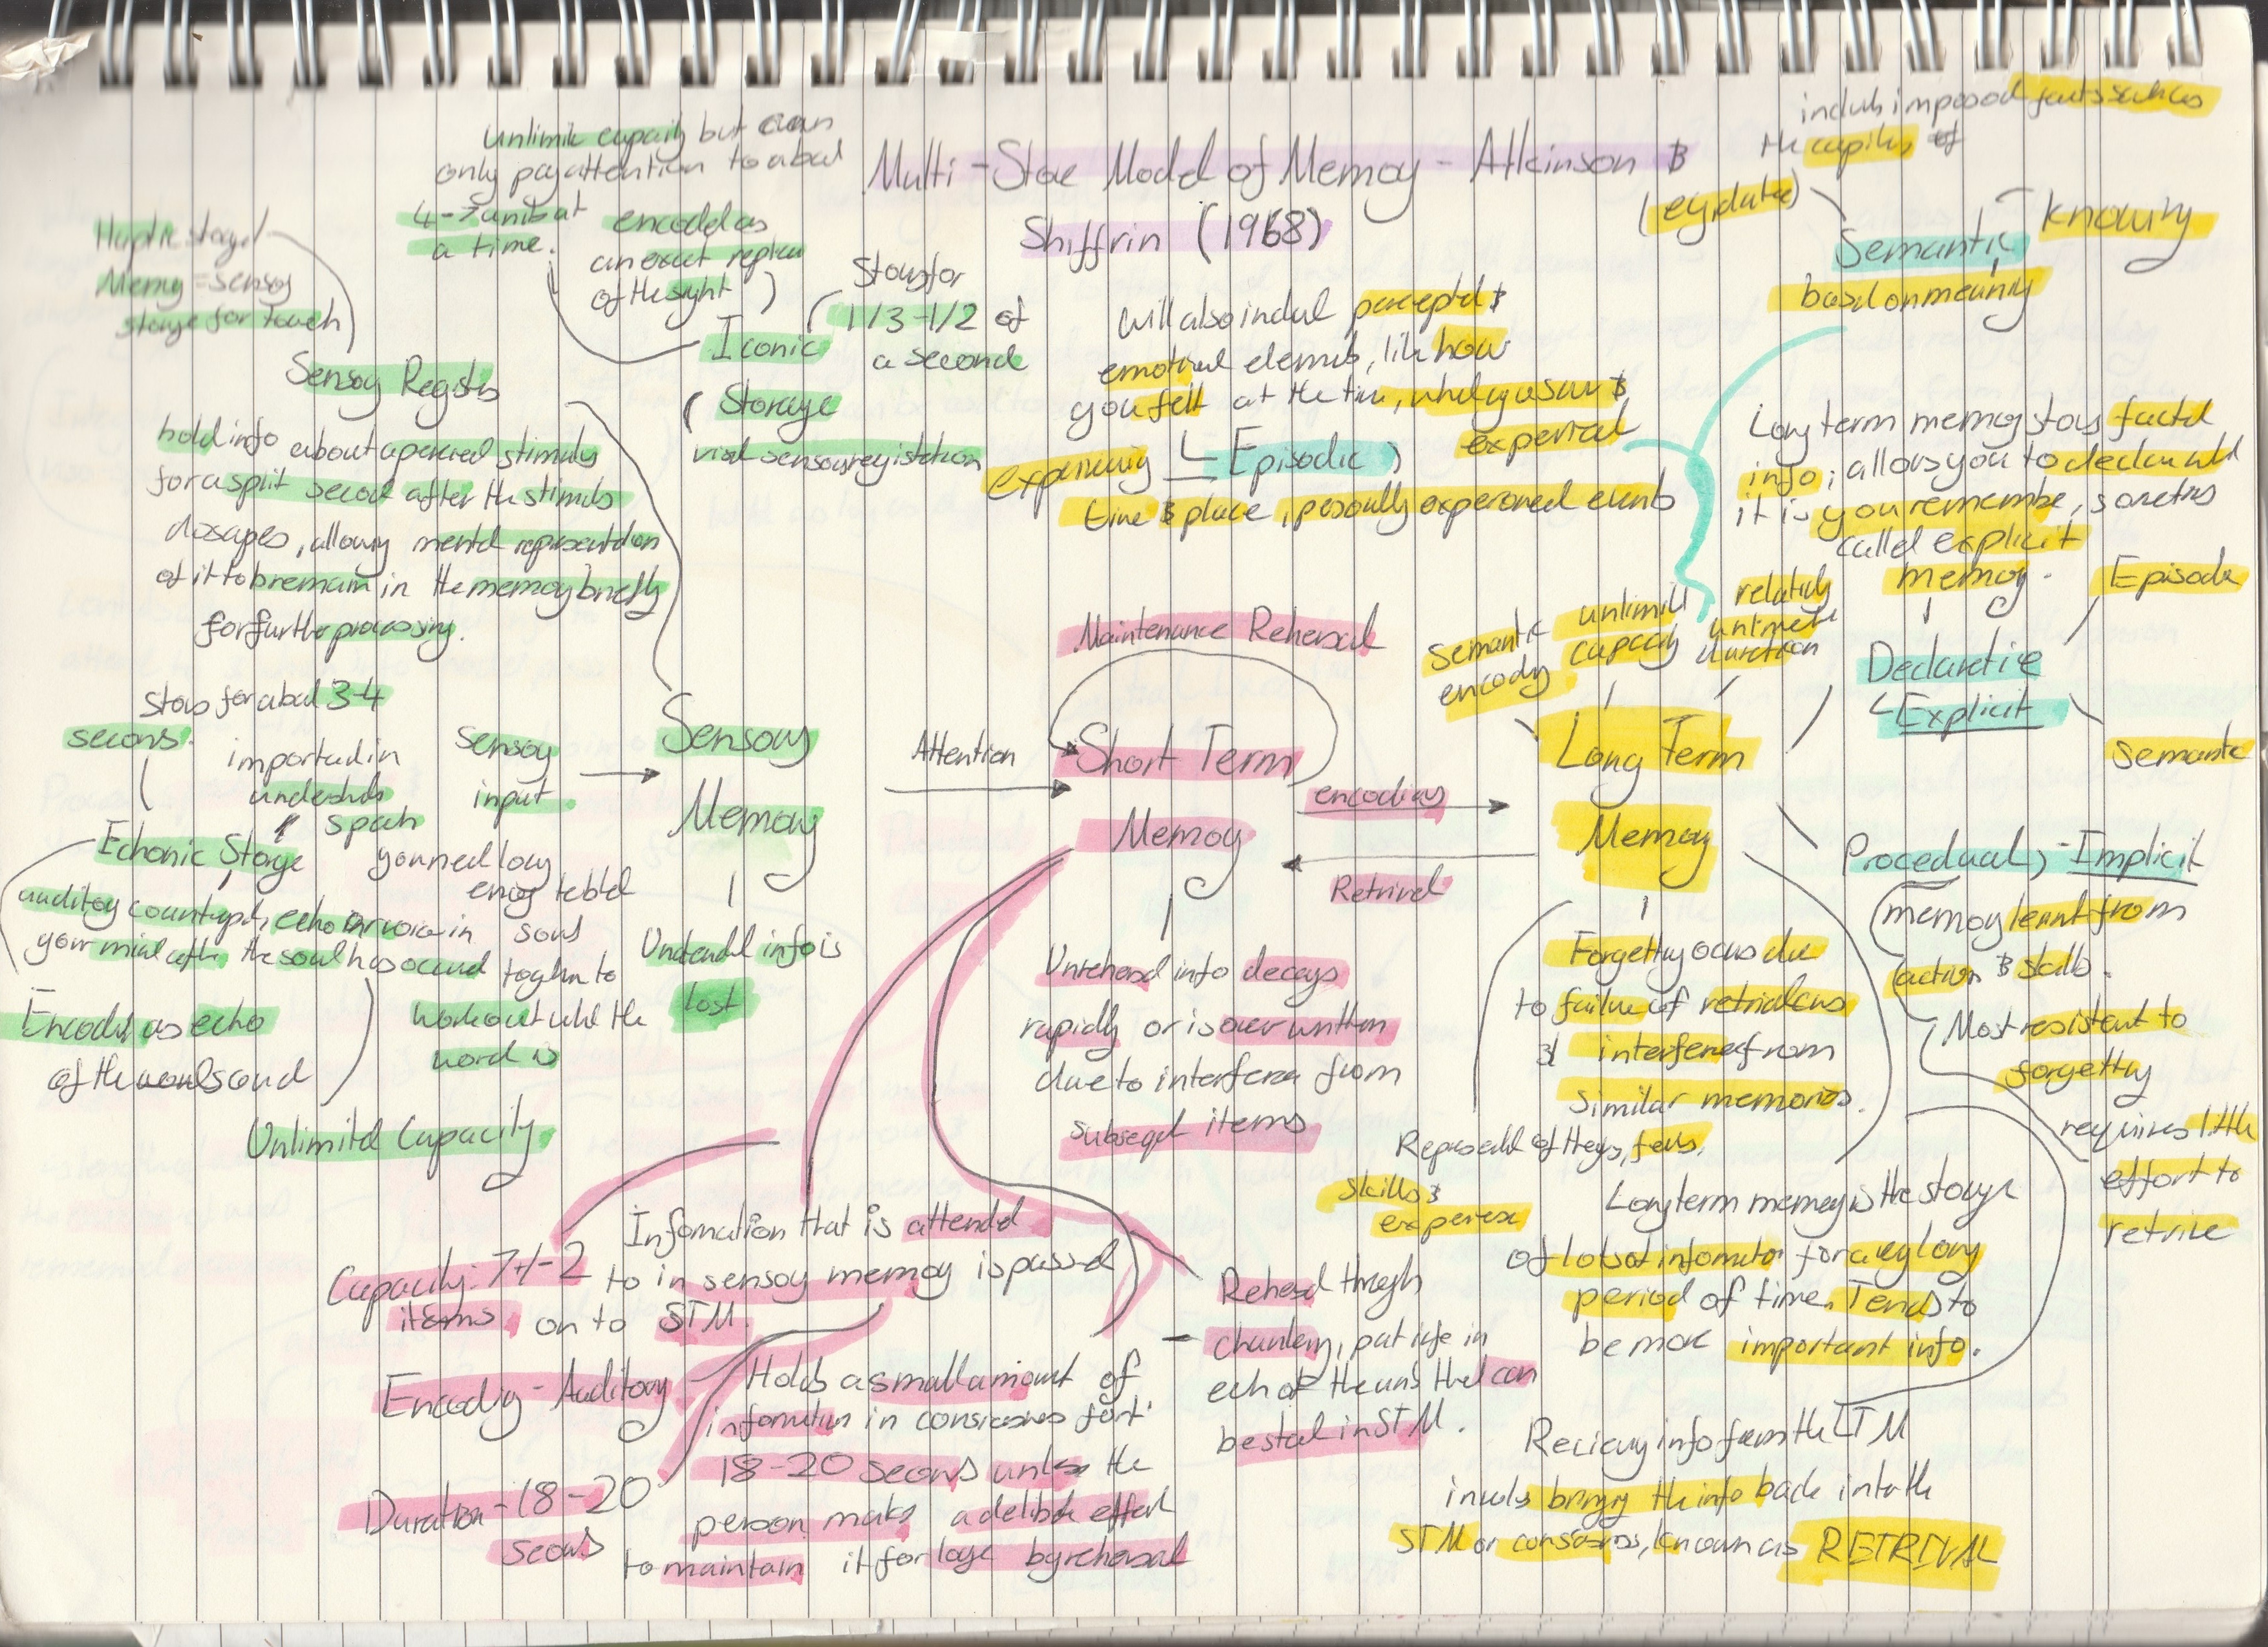 Multi-Store Model of Memoy - Atkinson &
Shiffrin (1968)
unlimited capacity but can
only pay attention to about
4-7 units at
a time.
encoded as
an exact replica
of the sight
Stays for
1/3-1/2 of
a second
Iconic
Storage
visual sensory registation
Haptic storage
Memoy = sensoy
storage for touch
Sensoy Register
hold info about a percieved stimulus
for a split second after the stimulus
dissapes, allowing mental representation
of it to b remain in the memoy briefly
for further processing.
stays for about 3-4
seconds.
important in
understands
speach
Echonic Storage
auditoy counterpart, echo or voice in
your mind after the sound has occured
Encoded as echo
of the sound
you need long
enog to hold
sounds
together to
work out what the
word is
Unlimited Capacity
Sensoy
input
Sensory
Memory
Unattended info is
lost
Attention
Maintenance Rehersal
Short Term
Memoy
encoding
Retrival
Unrehersed info decays
rapidly or is over written
due to interference from
subseqent items
Information that is attended
to in sensoy memoy is passed
on to STM.
Capacity: 7+/-2
items
Encoding - Auditory
Duration - 18-20
seconds
Holds a small amount of
information in consciousness for
18-20 seconds unless the
person makes a deliberate effort
to maintain it for longer by rehersal
Rehersed through
chunking, put info in
each of the units that can
be stored in STM.
will also include perceptual &
emotional elements, like how
you felt at the time, what you saw &
experienced
experiencing
Episodic
time & place, personally experienced events
Semantic
encoding
unlimited
capacity
relatively
unlimited
duration
Long Term
Memoy
Forgetting occurs due
to failure of retrieval cues
interference from
similar memories.
Represented of things, faces,
skills &
experience
Long term memoy is the storage
of lots of information for a very long
period of time. Tends to
be more important info.
Recieving info from the LTM
involves bringing the info back into the
STM or consciousness, known as RETRIVAL
include impersonal facts such as
the capitals of
(eg dates)
Semantic
Knowing
based on meaning
Long term memoy stores factual
info; allows you to declare what
it is you remember, sometimes
called explicit
memoy.
Declarative
Explicit
Episode
Semantic
Procedual - Implicit
memoy learnt from
action & skills.
Most resistent to
forgetting
requires little
effort to
retrive